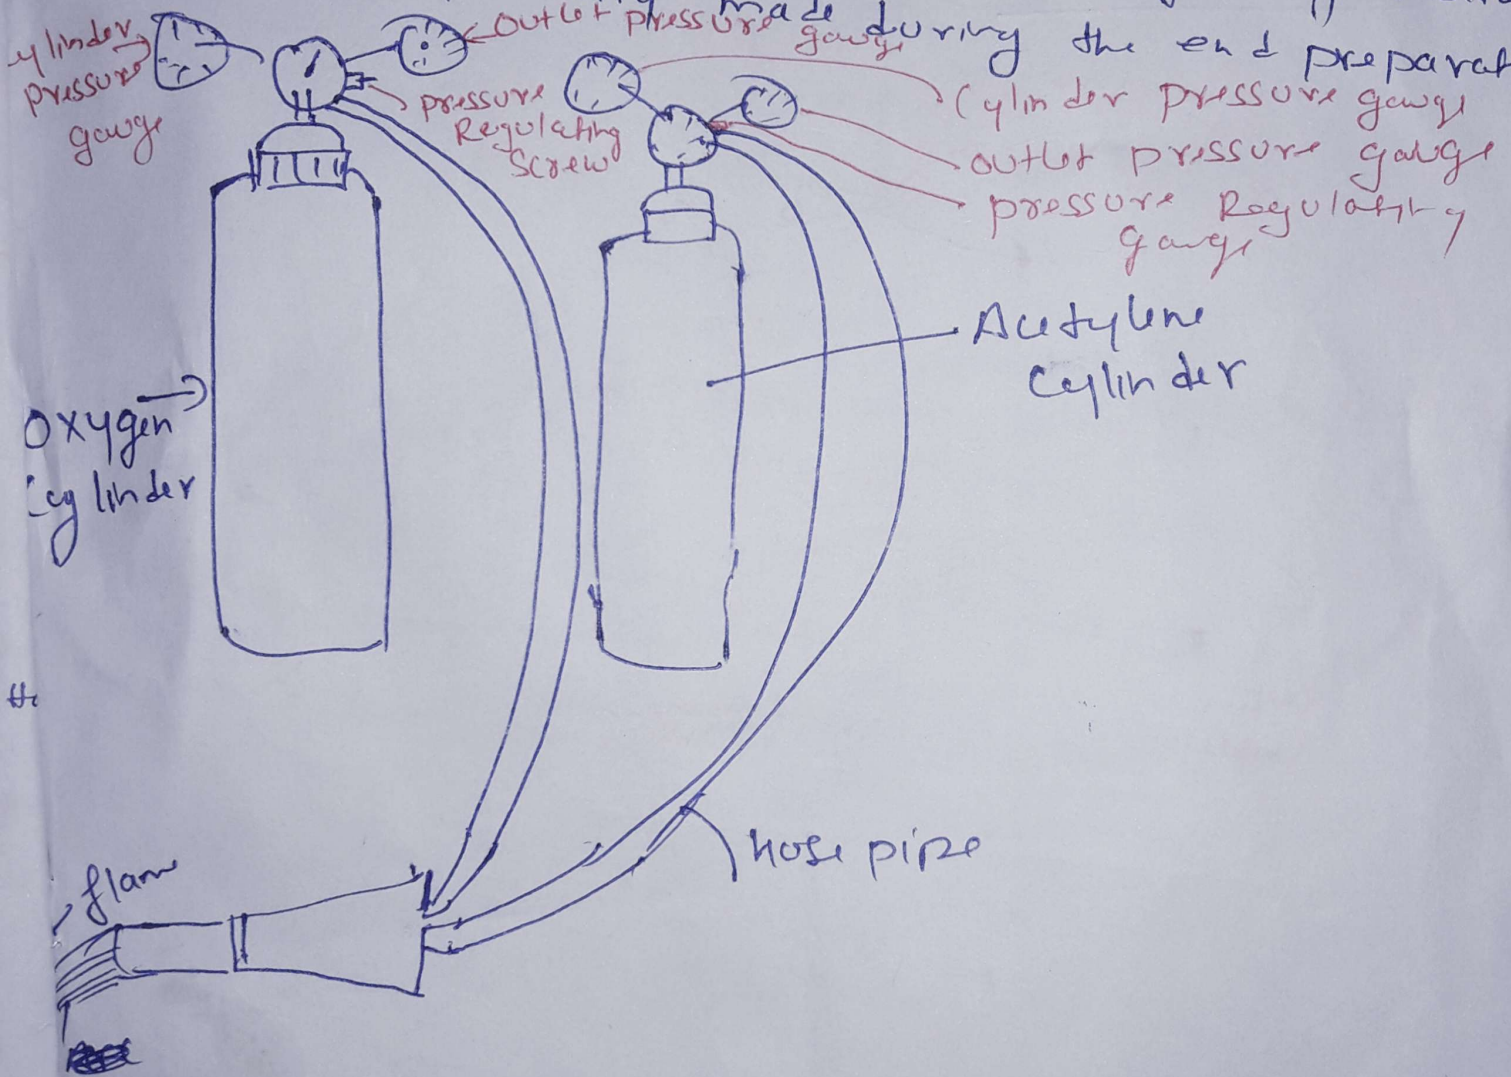 made during the end preparat
outlet pressure
gauge
ylinder
pressure
gauge
pressure
Regulating
Screw
Cylinder pressure gauge
outlet pressure gauge
pressure Regulating
gauge
Acetylene
Cylinder
Oxygen
Cylinder
hose pipe
flame